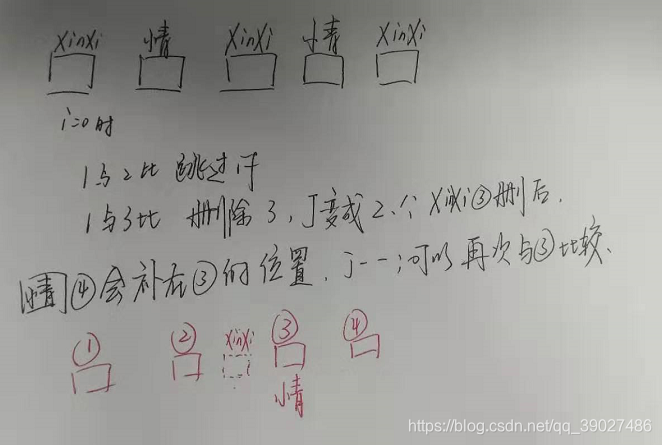 XinXi 情 XinXi 情 XinXi
i=0时
1与2比 跳过 if
1与3比 删除3,J变成2、个XinXi③删后,
情④会补在③的位置,J--;可以再次与③比较、
① ② XinXi ③ ④
情
https://blog.csdn.net/qq_39027486